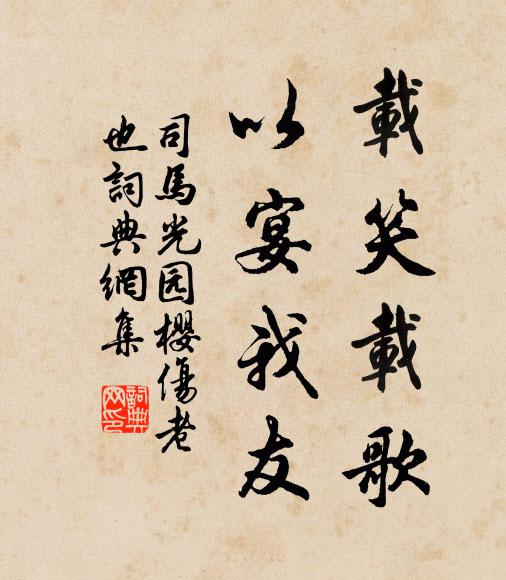 載笑載歌
以宴我友
司馬光园櫻傷老
也詞典網集
詞典
网印